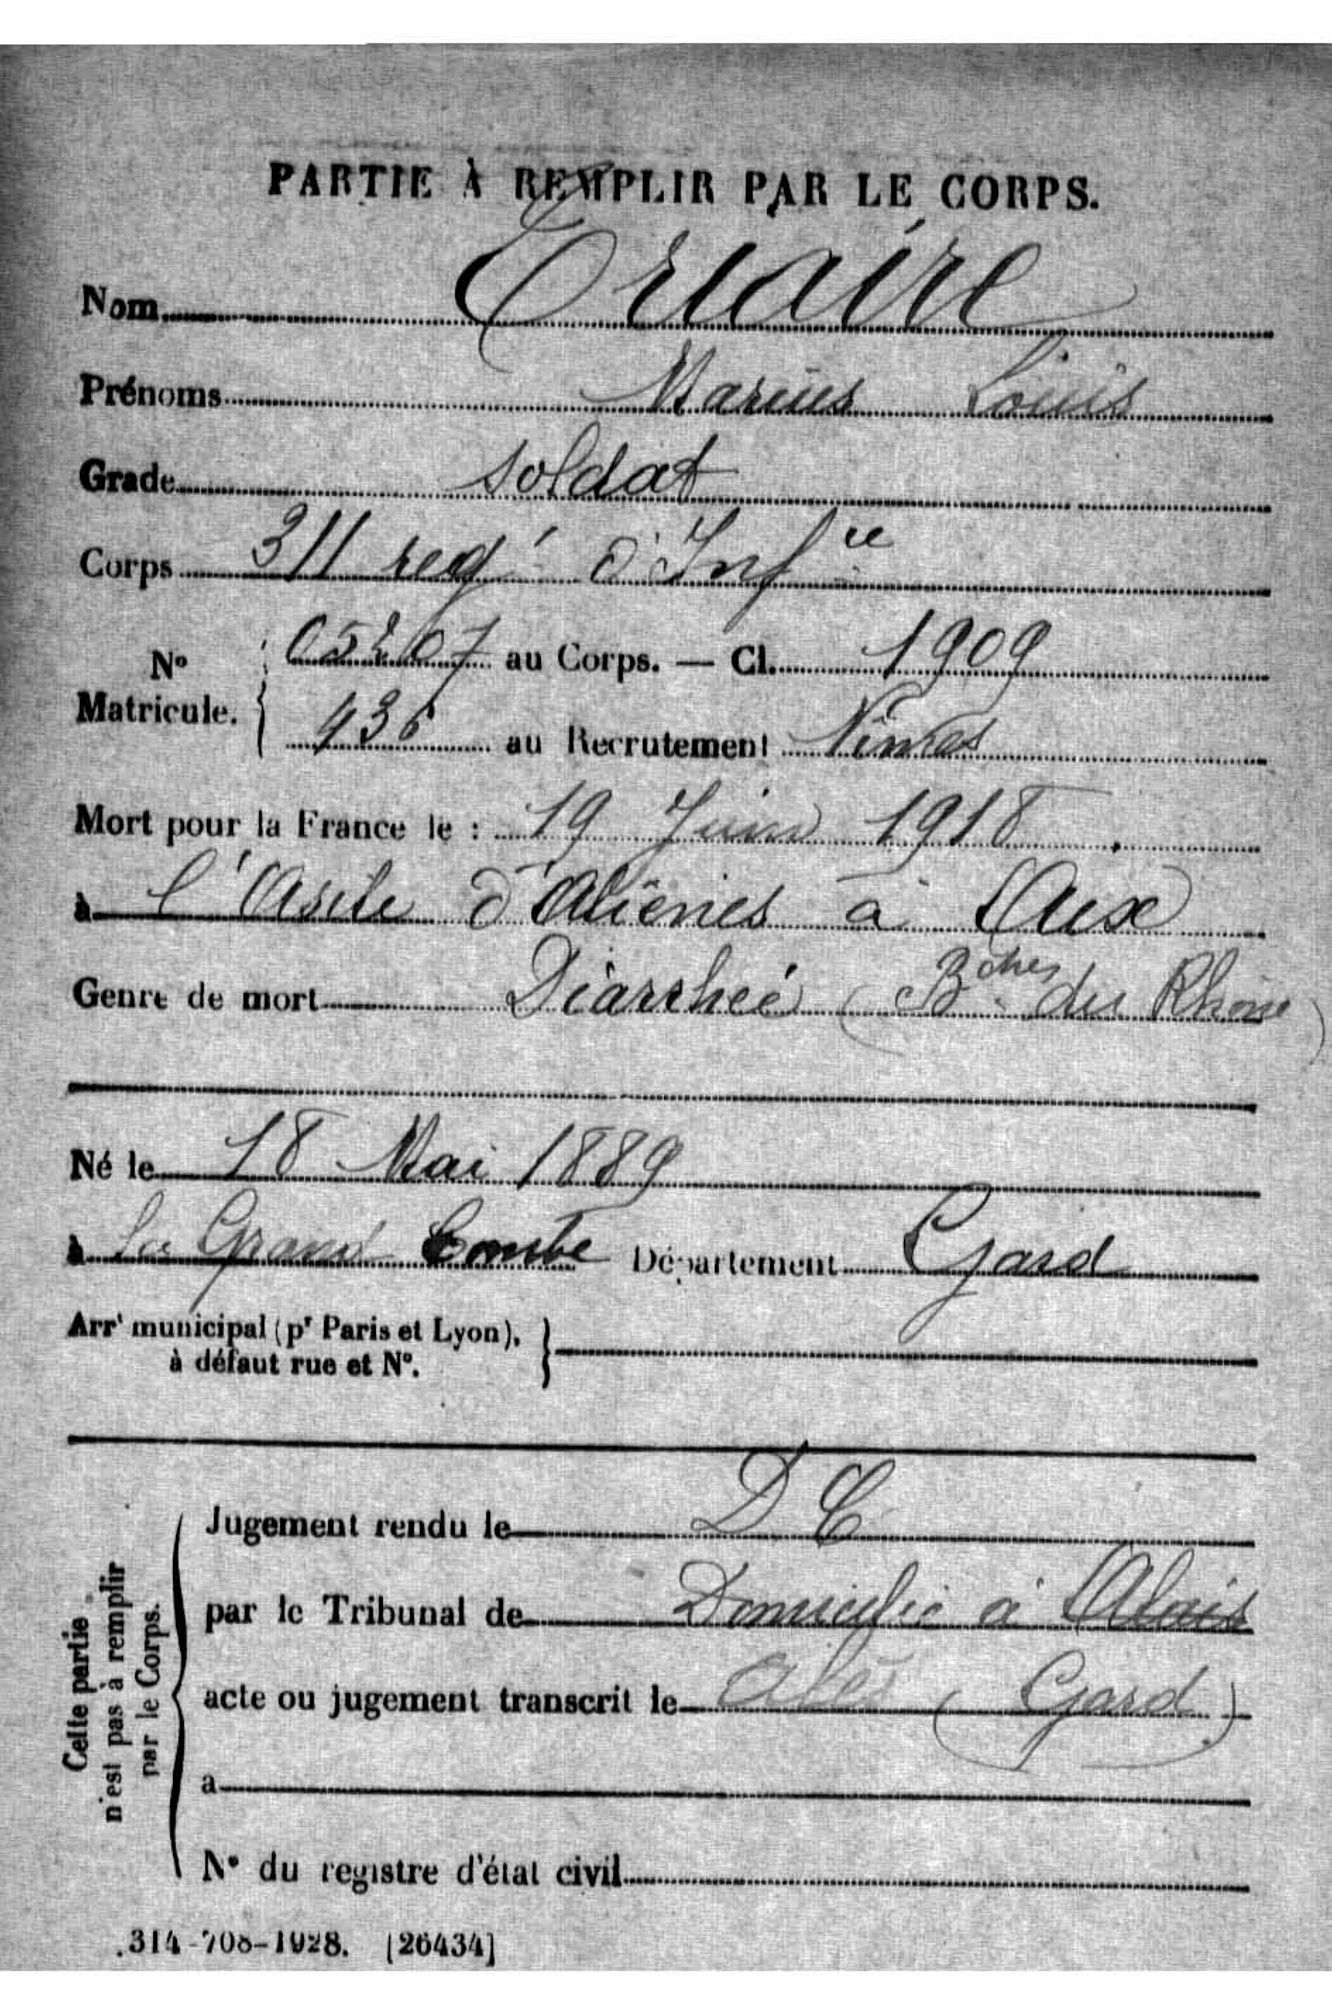 PARTIE À REMPLIR PAR LE CORPS.
Nom Triaire
Prénoms Marius Louis
Grade soldat
Corps 311 reg.t d'Inf.ie
N° Matricule. { 05267 au Corps. — Cl. 1909
436 au Recrutement Nîmes
Mort pour la France le : 19 Juin 1918
à l'Asile d'Aliénés à Aix
Genre de mort Diarrheé (Bches du Rhône)
Né le 18 Mai 1889
à La Grand Combe Département Gard
Arrt municipal (pr Paris et Lyon), à défaut rue et N°. }
Cette partie n'est pas à remplir par le Corps.
Jugement rendu le D C
par le Tribunal de Domicilié à Alais
acte ou jugement transcrit le Alès (Gard)
a
N° du registre d'état civil
.314-708-1928. [26434]